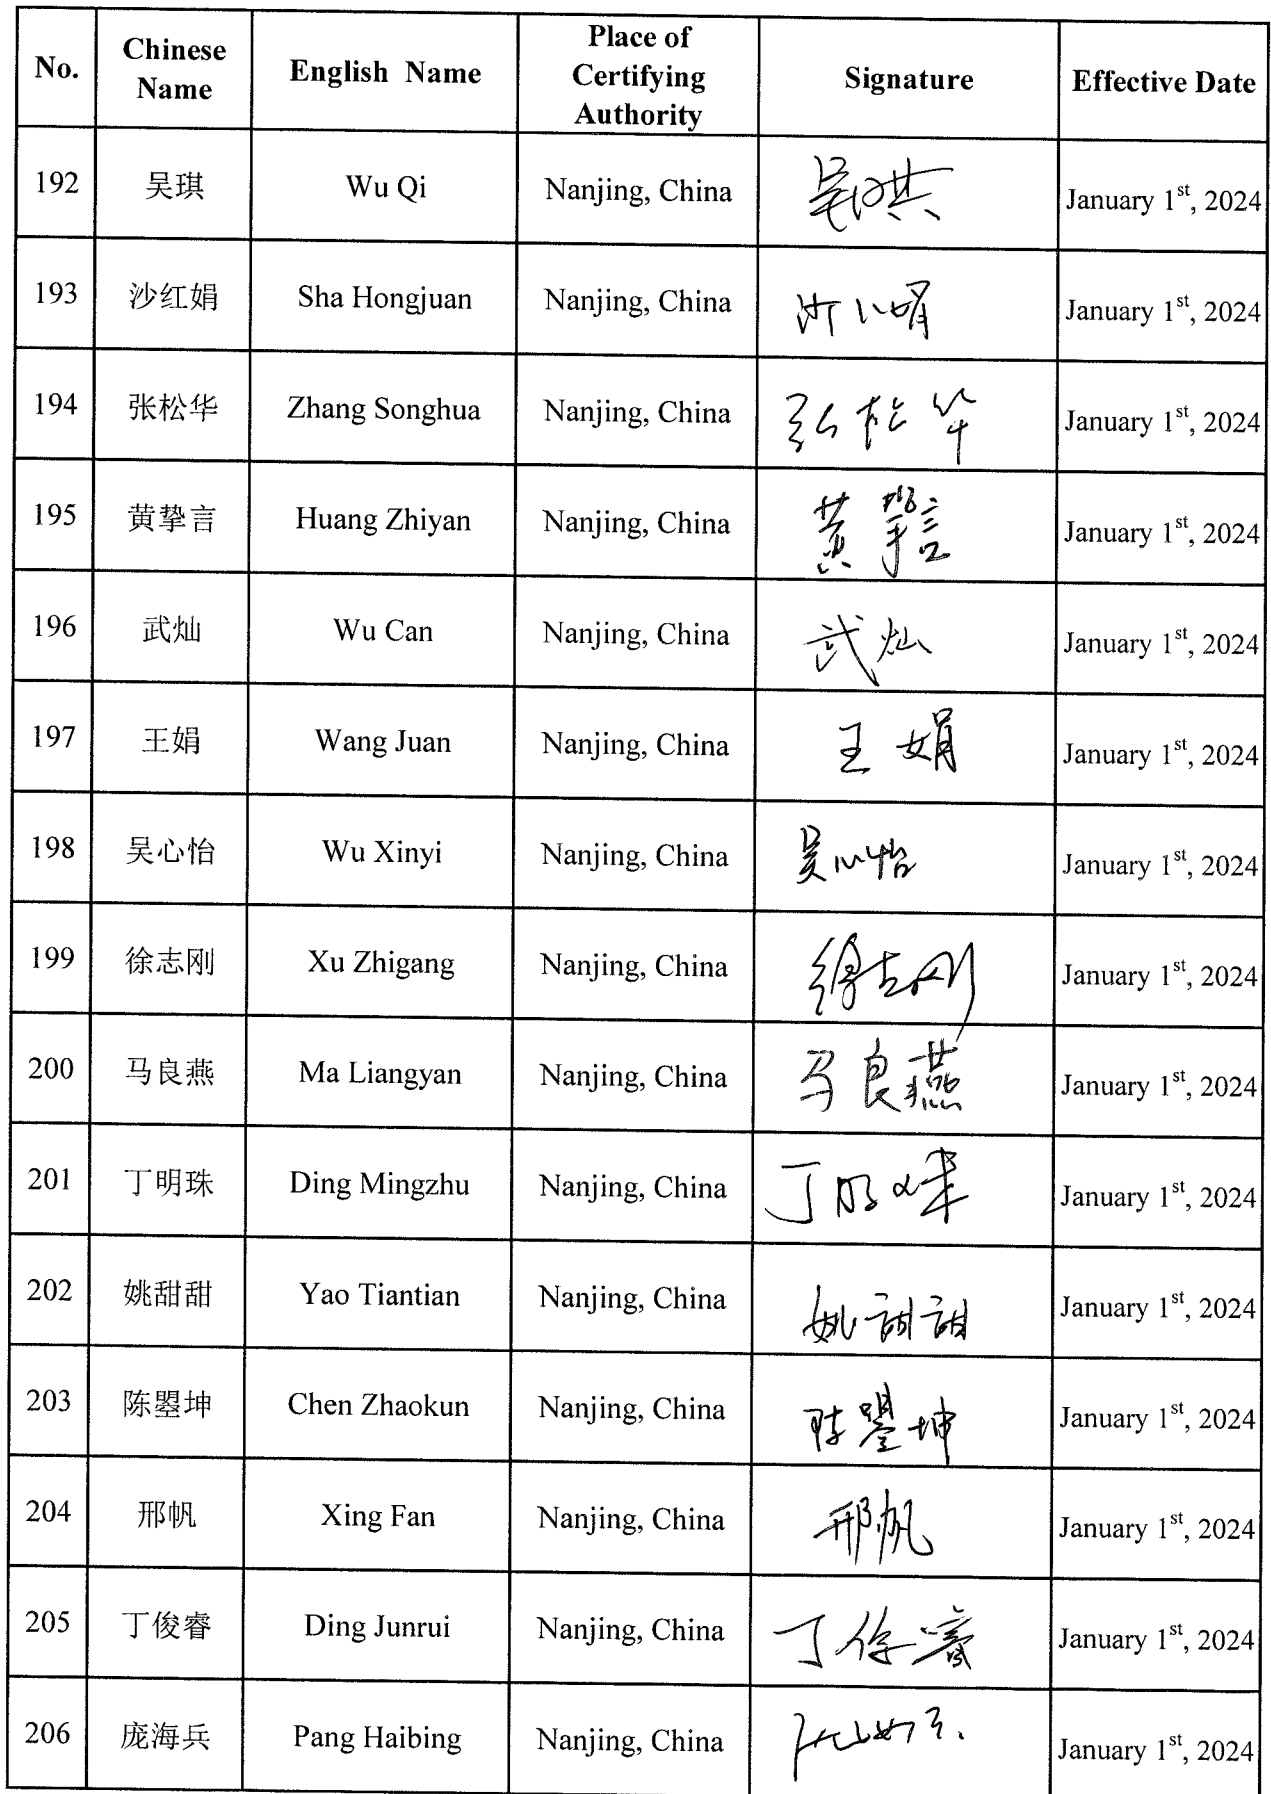 No. Chinese Name English Name Place of Certifying Authority Signature Effective Date
192 吴琪 Wu Qi Nanjing, China 吴琪 January 1st, 2024
193 沙红娟 Sha Hongjuan Nanjing, China 沙红娟 January 1st, 2024
194 张松华 Zhang Songhua Nanjing, China 张松华 January 1st, 2024
195 黄挚言 Huang Zhiyan Nanjing, China 黄挚言 January 1st, 2024
196 武灿 Wu Can Nanjing, China 武灿 January 1st, 2024
197 王娟 Wang Juan Nanjing, China 王娟 January 1st, 2024
198 吴心怡 Wu Xinyi Nanjing, China 吴心怡 January 1st, 2024
199 徐志刚 Xu Zhigang Nanjing, China 徐志刚 January 1st, 2024
200 马良燕 Ma Liangyan Nanjing, China 马良燕 January 1st, 2024
201 丁明珠 Ding Mingzhu Nanjing, China 丁明珠 January 1st, 2024
202 姚甜甜 Yao Tiantian Nanjing, China 姚甜甜 January 1st, 2024
203 陈曌坤 Chen Zhaokun Nanjing, China 陈曌坤 January 1st, 2024
204 邢帆 Xing Fan Nanjing, China 邢帆 January 1st, 2024
205 丁俊睿 Ding Junrui Nanjing, China 丁俊睿 January 1st, 2024
206 庞海兵 Pang Haibing Nanjing, China January 1st, 2024